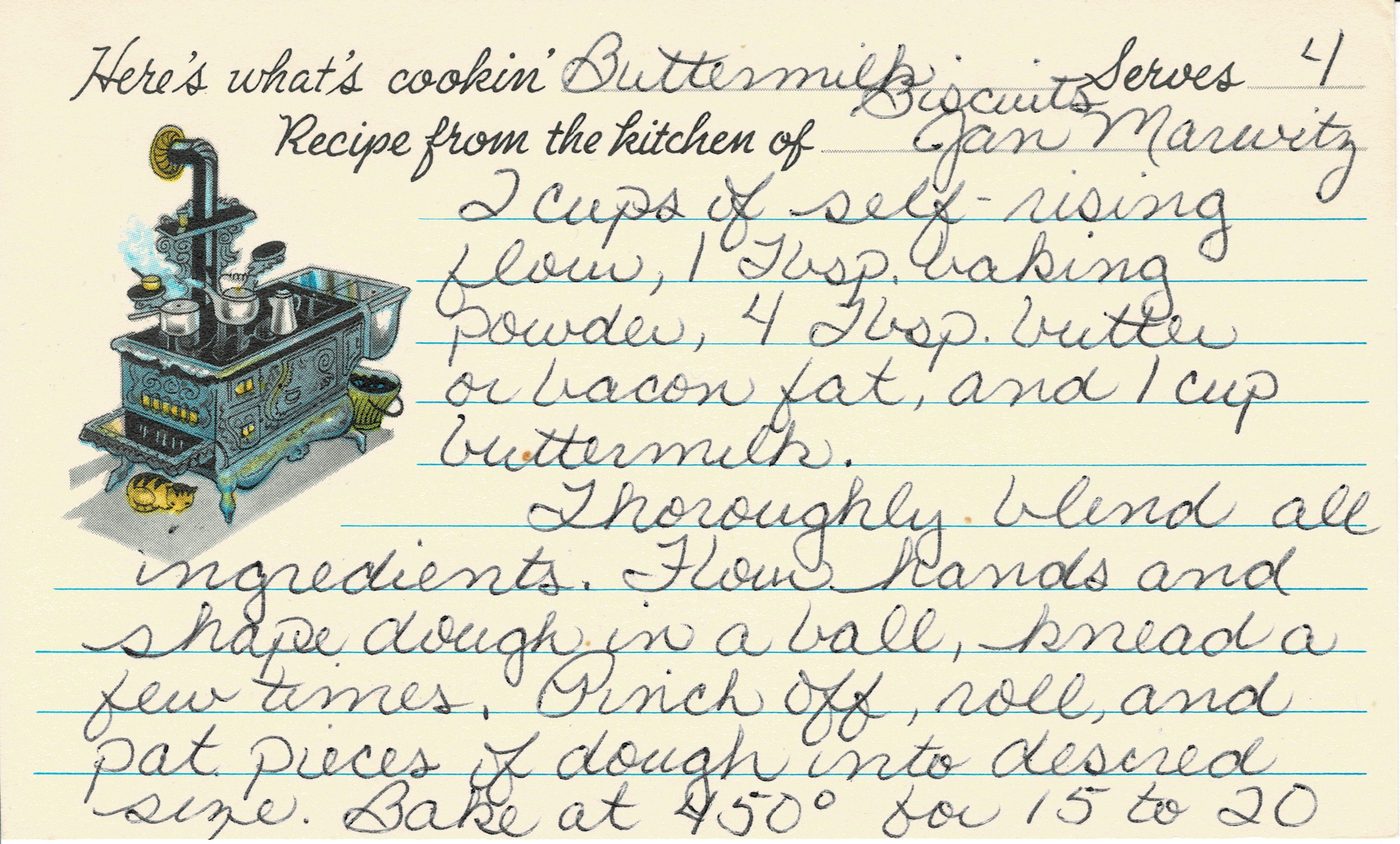 Here's what's cookin' Buttermilk Biscuits Serves 4
Recipe from the kitchen of Jan Marwitz
2 cups of self-rising
flour, 1 Tbsp. baking
powder, 4 Tbsp. butter
or bacon fat, and 1 cup
buttermilk.
Thoroughly blend all
ingredients. Flour hands and
shape dough in a ball, knead a
few times. Pinch off, roll, and
pat pieces of dough into desired
size. Bake at 450° for 15 to 20